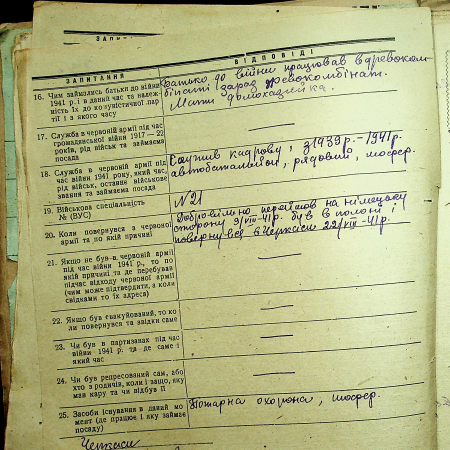 ЗАПИТАННЯ
ВІДПОВІДІ
16. Чим займались батьки до війни
1941 р. і в даний час та належ-
ність їх до комуністичної пар-
тії і з якого часу
Батько до війни працював в древоком-
бінаті зараз Древокомбінат.
Мати домохазяйка.
17. Служба в червоній армії під час
громадянської війни 1917—22
років, рід військ та займаема
посада
18. Служба в червоній армії під
час війни 1941 року, який час,
рід військ, останнє військове
звання та займаема посада
Служив кадрову, з 1939 р.-1941 р.
автобатальйон, рядовий, шофер.
19. Військова спеціальність
№ (ВУС)
№ 21
20. Коли повернувся з червоної
армії та по якій причині
Добровільно перейшов на німецьку
сторону 9/VIII-41р. був в полоні і
повернувся в Черкаси 22/VIII-41р.
21. Якщо не був в червоній армії
під час війни 1941 р., то по
якій причині та де перебував
підчас відходу червоної армії
(чим може підтвердити, а коли
свідками то їх адреса)
22. Якщо був евакуйований, то ко-
ли повернувся та звідки саме
23. Чи був в партизанах під час
війни 1941 р. та де саме і
який час
24. Чи був репресований сам, або
хто з родичів, коли і защо, яку
мав кару та чи відбув її
25. Засоби існування в даний мо-
мент (де працює і яку займає
посаду)
Пожарна охорона, шофер.
Черкаси